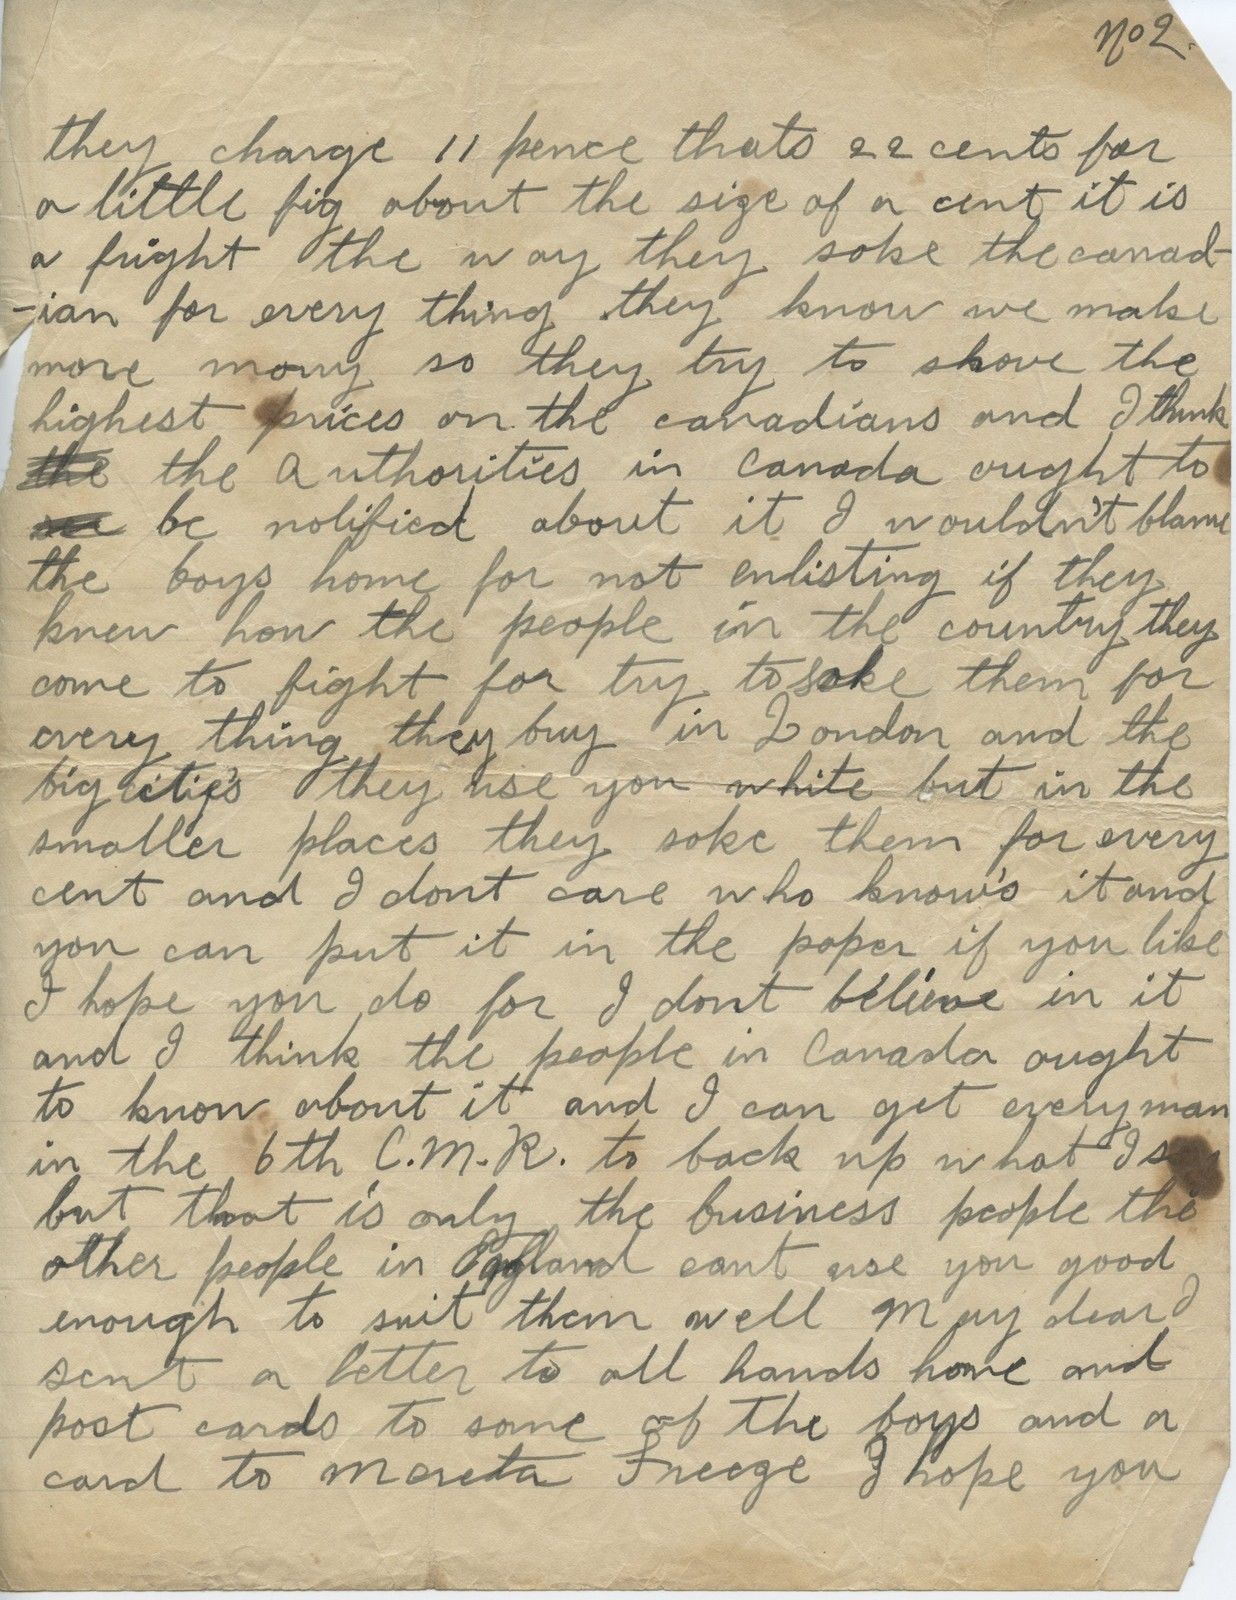 No 2.
they charge 11 pence thats 22 cents for
a little fig about the size of a cent it is
a fright the way they soke the canad-
-ian for every thing they know we make
more mony so they try to shove the
highest prices on the canadians and I think
the the Authorities in Canada ought to
be notified about it I wouldn't blame
the boys home for not enlisting if they
knew how the people in the country they
come to fight for try to soke them for
every thing they buy in London and the
big citie's they use you white but in the
smaller places they soke them for every
cent and I dont care who know's it and
you can put it in the paper if you like
I hope you do for I dont believe in it
and I think the people in Canada ought
to know about it and I can get every man
in the 6th C.M.R. to back up what I
but that is only the business people the
other people in England cant use you good
enough to suit them well May dear I
sent a letter to all hands home and
post cards to some of the boys and a
card to Mareta Freeze I hope you